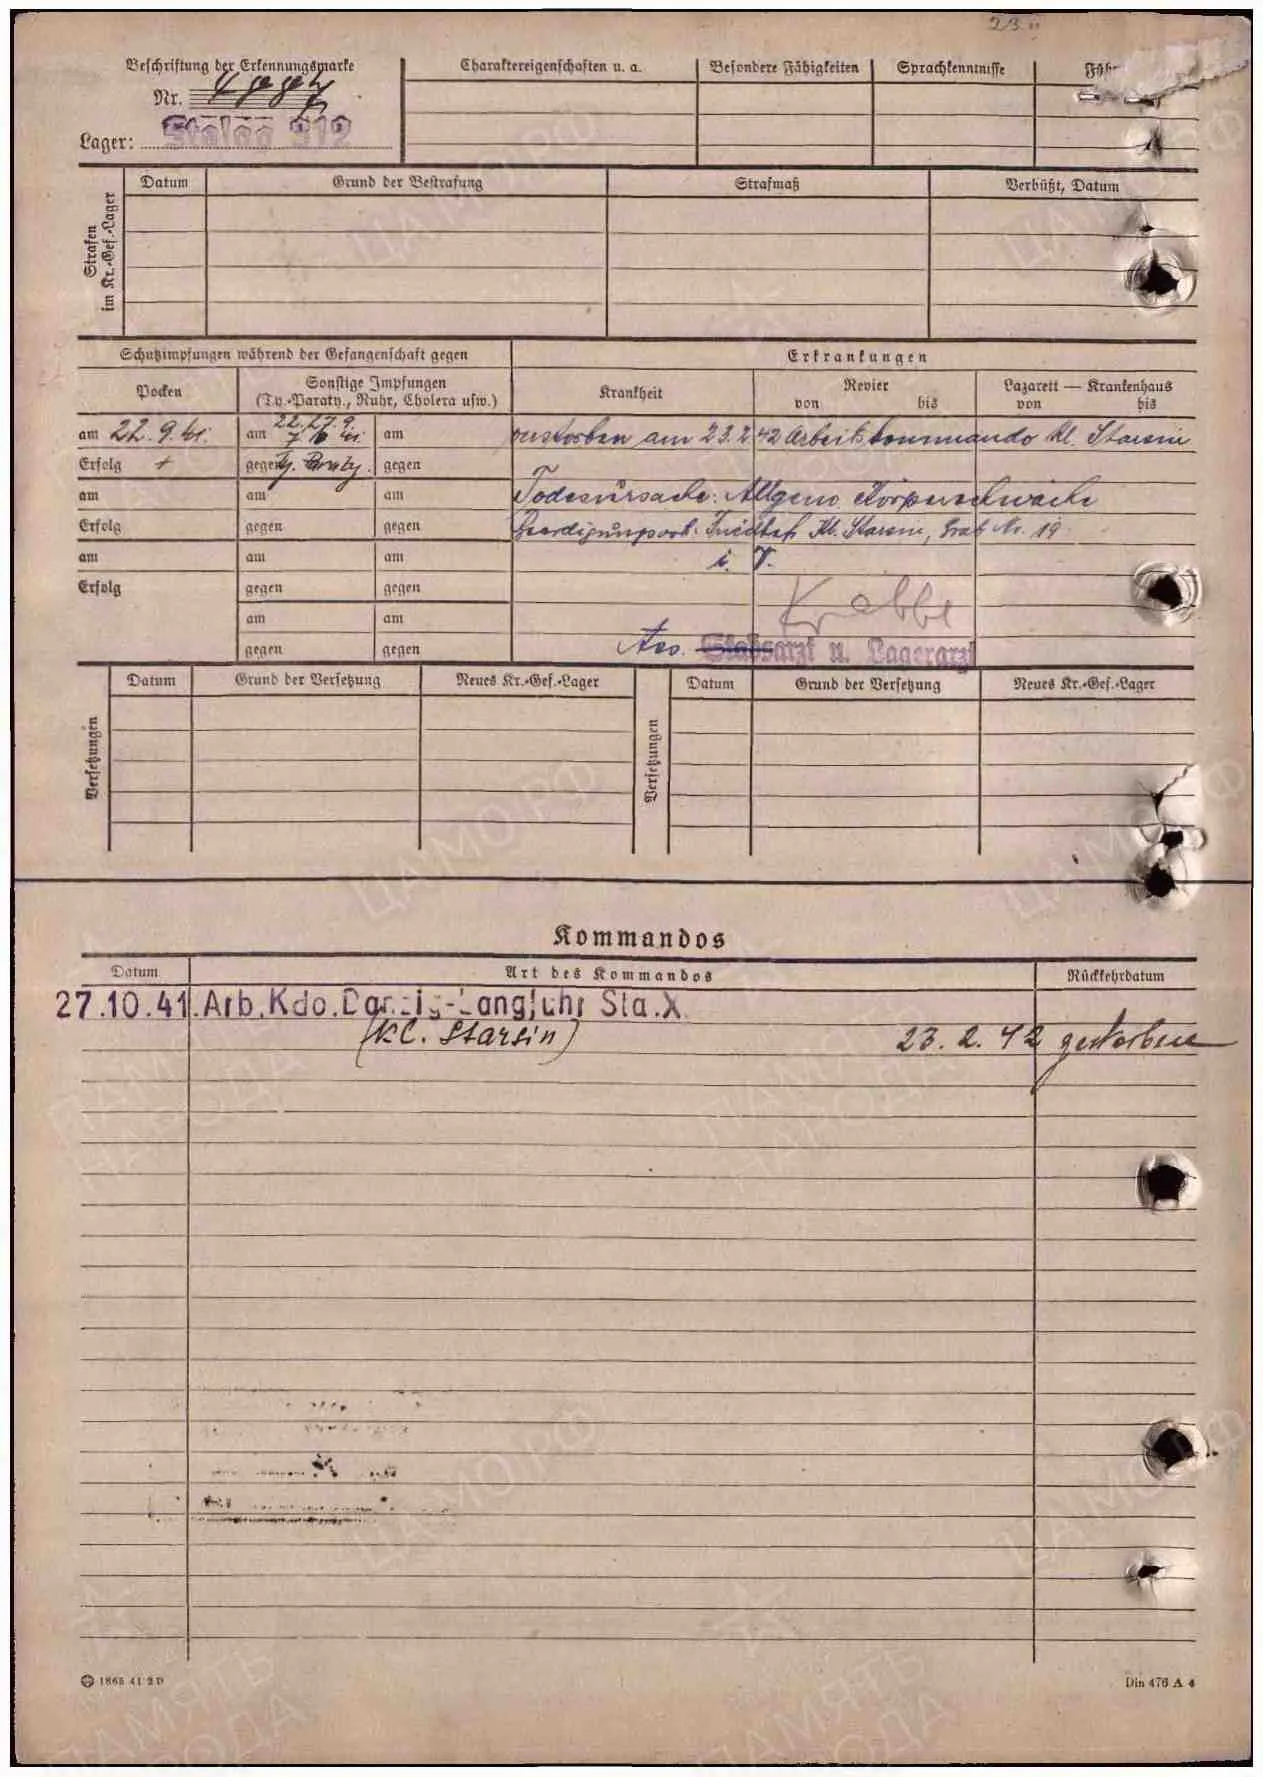 23.
Beschriftung der Erkennungsmarke
Nr.
Lager: Stalag 312
Charaktereigenschaften u. a.
Besondere Fähigkeiten
Sprachkenntnisse
Strafen im Kr.-Gef.-Lager
Datum
Grund der Bestrafung
Strafmaß
Verbüßt, Datum
Schutzimpfungen während der Gefangenschaft gegen
Erkrankungen
Pocken
Sonstige Impfungen
(Ty.-Paraty., Ruhr, Cholera usw.)
Krankheit
Revier
von bis
Lazarett — Krankenhaus
von bis
am 22.9.41. am am
verstorben am 23.2.42 Arbeitskommando Kl. Starsin
Erfolg + gegen Ty. Paraty. gegen
am am am
Todesursache: Allgem. Körperschwäche
Erfolg gegen gegen
Beerdigungsort: Friedhof Kl. Starsin, Grab Nr. 19
am am am
i. V.
Erfolg gegen gegen
Krabbe
am am
Ass. Stabsarzt u. Lagerarzt
gegen gegen
Versetzungen
Datum Grund der Versetzung Neues Kr.-Gef.-Lager
Versetzungen
Datum Grund der Versetzung Neues Kr.-Gef.-Lager
Kommandos
Datum Art des Kommandos Rückkehrdatum
27.10.41. Arb.Kdo.Danzig-Langfuhr Sta.X.
(Kl. Starsin) 23.2.42 gestorben
1865 41 2 D
Din 476 A 4
ЦАМО РФ
ПАМЯТЬ НАРОДА